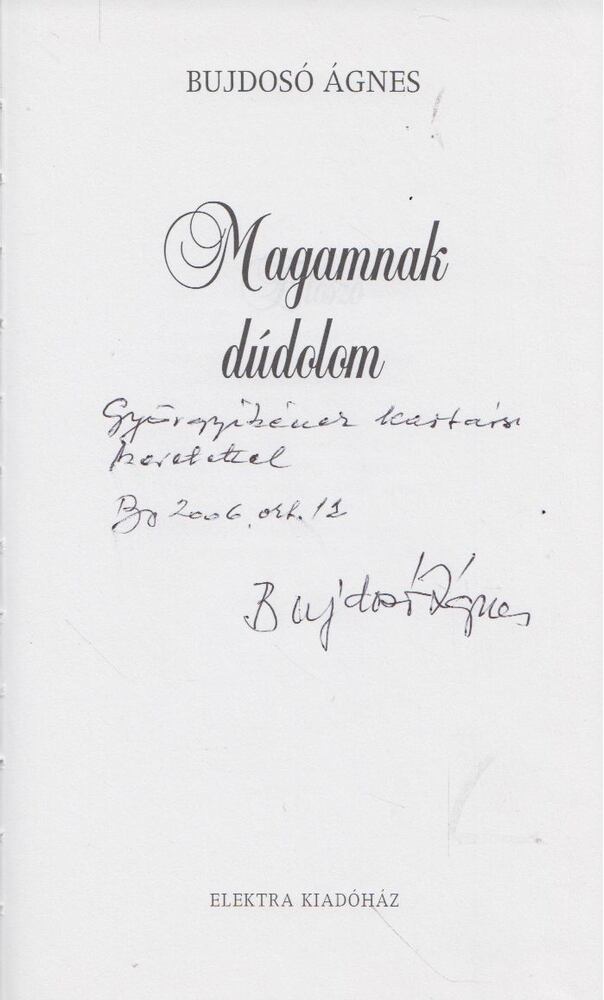 BUJDOSÓ ÁGNES
Magamnak
dúdolom
Györgyikének
szeretettel
Bp 2006. okt. 12
Bujdosó Ágnes
ELEKTRA KIADÓHÁZ